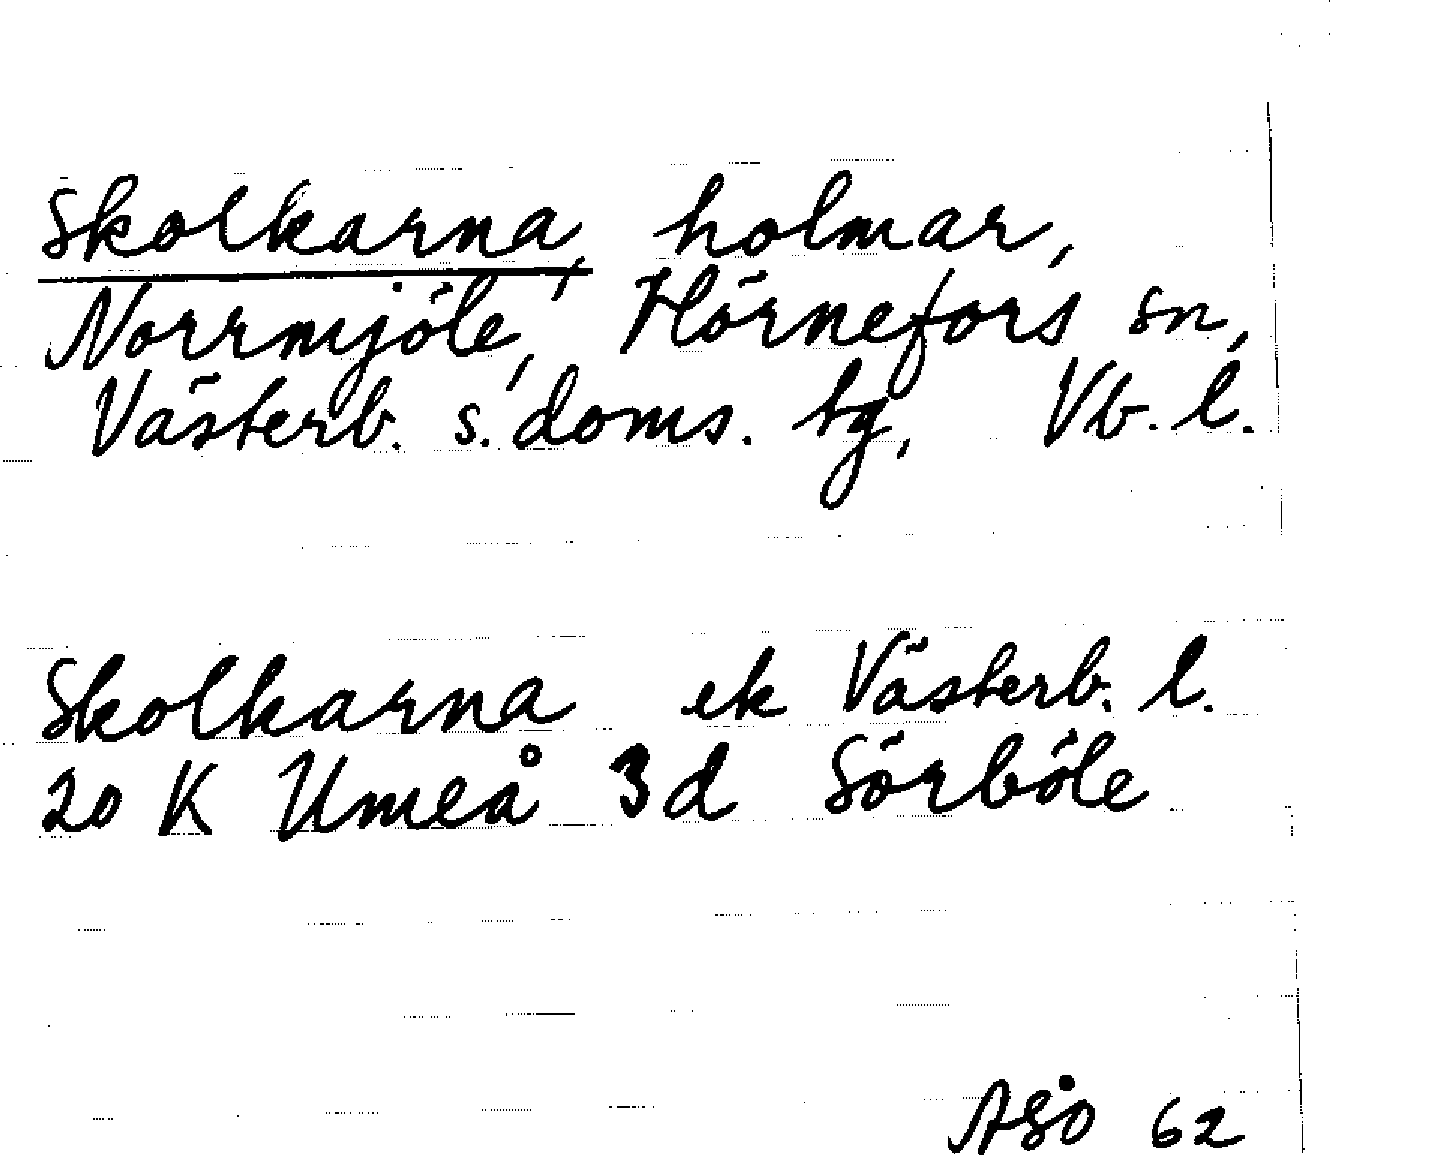 Skolkarna, holmar,
Norrmjöle, Hörnefors sn,
Västerb. s. doms. tg, Vb. l.
Skolkarna ek Västerb. l.
20 K Umeå 3d Sörböle
ASÖ 62